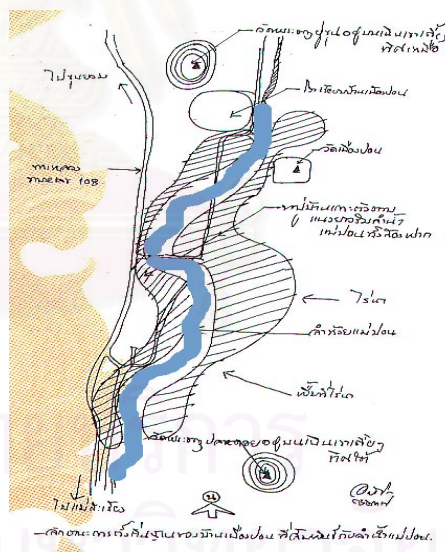 วัดพระธาตุ
อยู่บนเนินเขาเตี้ยๆ
ทิศเหนือ
ไปขุนยวม
โรงเรียนบ้านเมืองปอน
วัดเมืองปอน
ทางหลวง
หมายเลข 108
หมู่บ้านเกาะตัวตาม
แนวยาวริมลำน้ำ
แม่ปอนทั้งสองฟาก
ไร่นา
ลำห้วยแม่ปอน
พื้นที่ไร่นา
วัดพระธาตุ
อยู่บนเนินเขาเตี้ยๆ
ทิศใต้
ไปแม่สะเรียง
น
ลักษณะการตั้งถิ่นฐานของบ้านเมืองปอน ที่สัมพันธ์กับลำน้ำแม่ปอน.